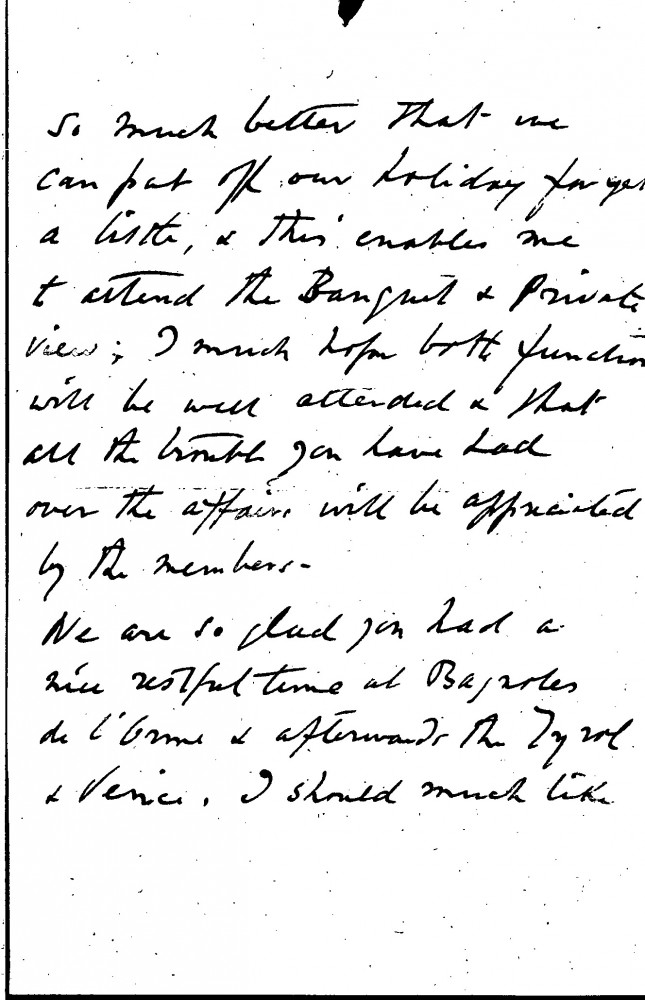 so much better that we
can put off our holiday for yet
a little, & this enables me
to attend the Banquet & Private
view; I much hope both function
will be well attended & that
all the trouble you have had
over the affairs will be appreciated
by the members -
We are so glad you had a
nice restful time at Bagnoles
de l'Orne & afterwards the Tyrol
& Venice. I should much like